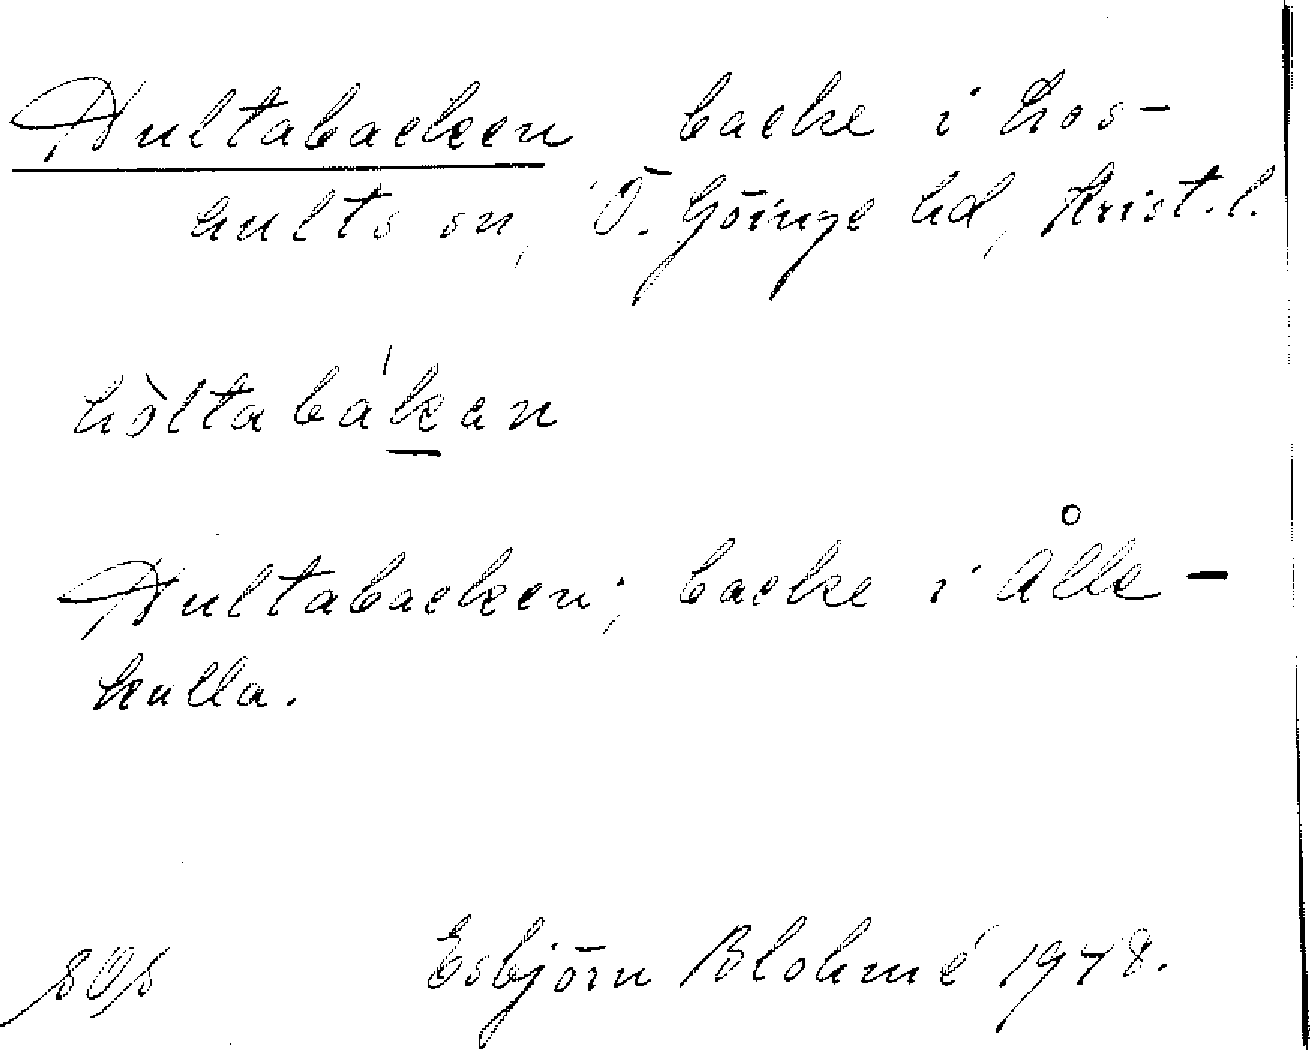 Hultabacken backe i Los-
hults sn, Ö. Göinge hd, Krist. l.
hòltabákan
Hultabacken; backe i Ålle-
kulla.
Esbjörn Blohmé 1948.